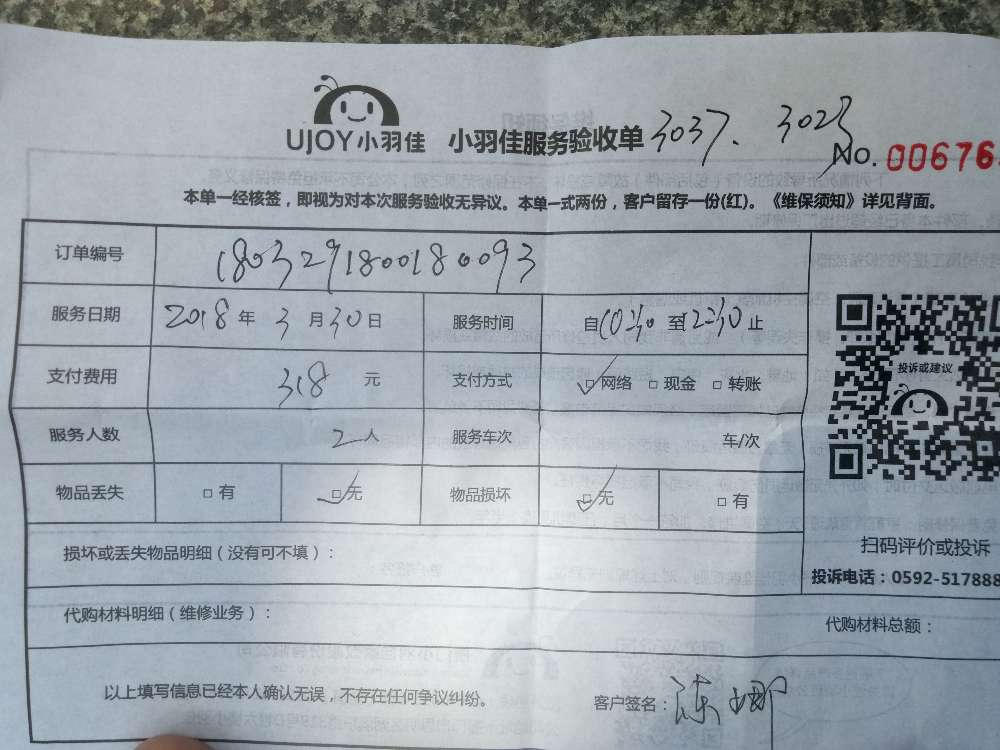 UJOY小羽佳 小羽佳服务验收单 3037. 3023
No. 00676
本单一经核签，即视为对本次服务验收无异议。本单一式两份，客户留存一份(红)。《维保须知》详见背面。
订单编号 1803291800180093
服务日期 2018年 3月30日 服务时间 自10:30至12:30止
支付费用 318 元 支付方式 ☑网络 □现金 □转账
投诉或建议
服务人数 2人 服务车次 车/次
物品丢失 □有 ☑无 物品损坏 ☑无 □有
扫码评价或投诉
损坏或丢失物品明细（没有可不填）：
投诉电话：0592-517888
代购材料明细（维修业务）： 代购材料总额：
以上填写信息已经本人确认无误，不存在任何争议纠纷。 客户签名：陈娜